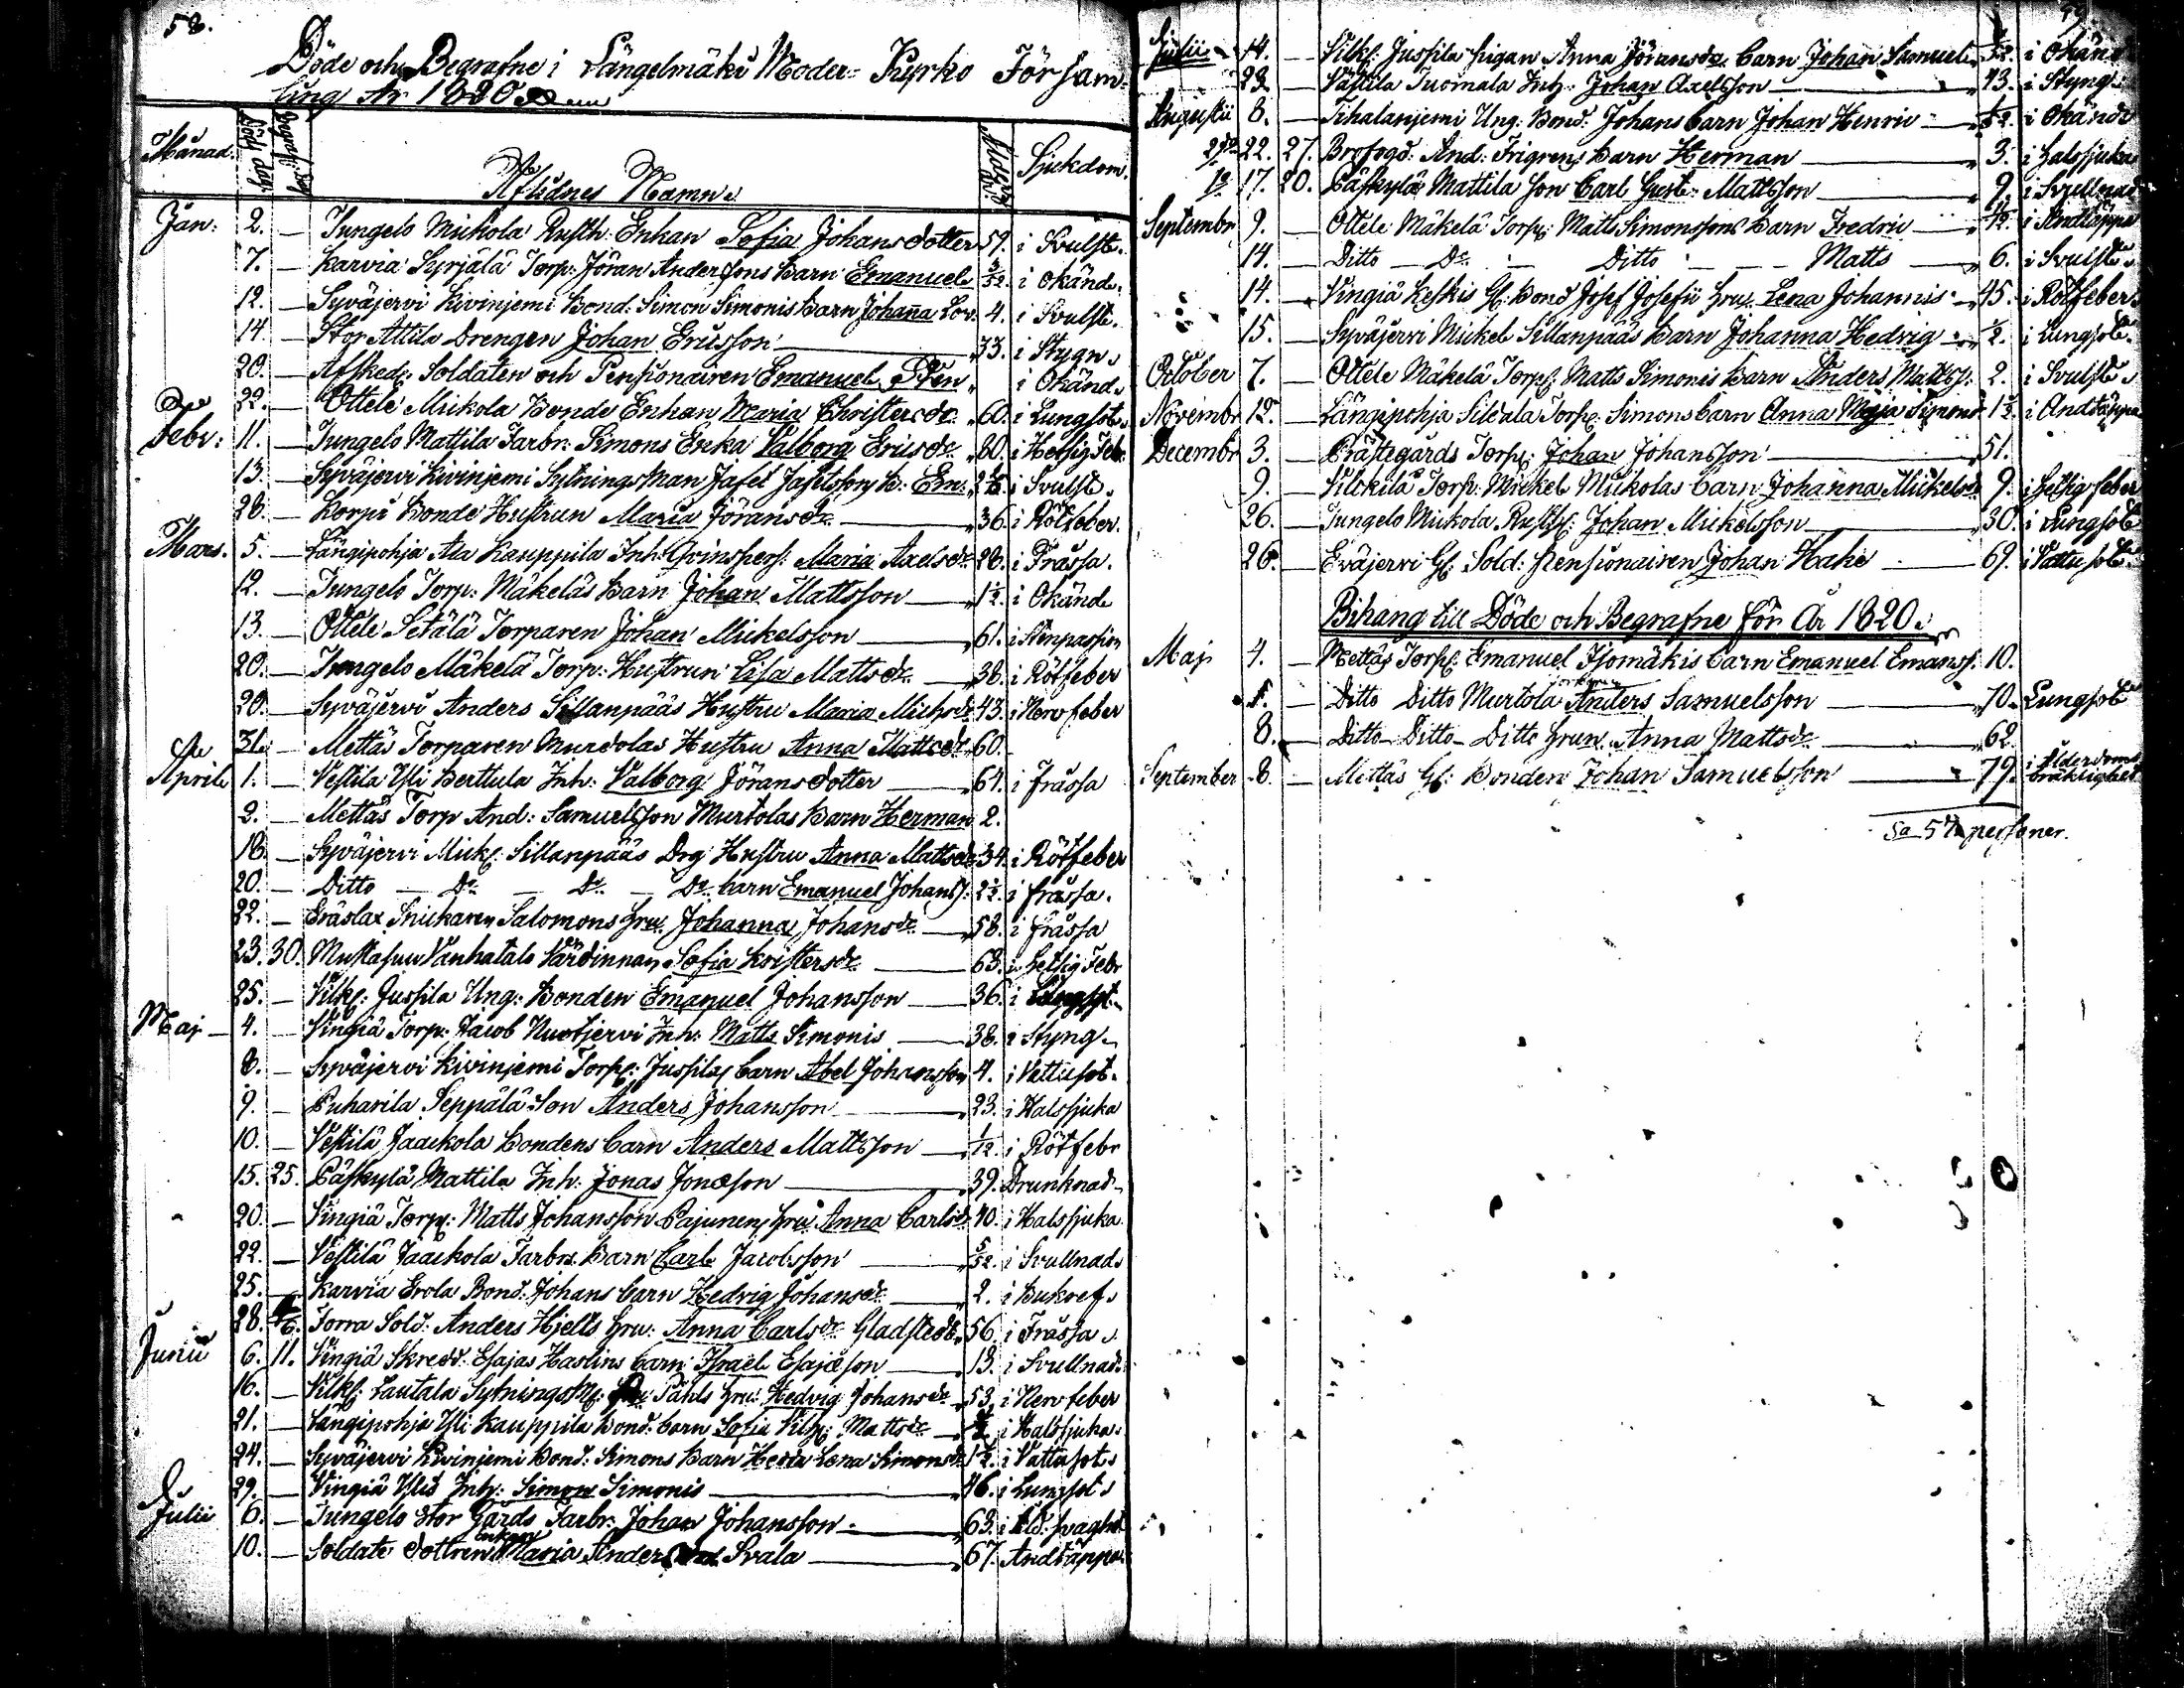 58.
Döde och Begrafne i Längelmäki Moder Kyrko Försam-
ling År 1820
Månad. Död dag. Begrafn: dag Aflidnes Namn. Ålder År. Sjukdom.
Jan: 2. — Jungelo Mickola Rusth: Enkan Sofia Johansdotter 59. i Svulst.
7. — Karvia Syrjälä Torp: Jöran Andersons Barn Emanuel 3/52 i Okänd.
12. — Syväjervi Kivinjemi Bond: Simon Simonis Barn Johanna Lov. 4. i Svulst.
14 — Stor Attila Drengen Johan Ericsson 33. i Stygn
20. — Afsked: Soldaten och Pensionairen Emanuel i Okänd.
22. — Ottele Mickola Bonde Enkan Maria Christersdr 60. i Lungsot
Febr: 11. — Jungelo Mattila Farbr: Simons Enka Valborg Ericsdr 80. i Hetsig Feb.
13. — Syväjervi Kivinjemi Sytnings Man Jafet Jafetssons b: Em: 2 1/2 i Svulst.
28. — Korpi Bonde Hustrun Maria Jöransdr 36. i Rötfeber.
Mars. 5. — Längipohja Ala Kauppila Inh: Qvinspers: Maria Axelsdr 28. i Frässa.
12. — Jungelo Torp: Mäkeläs Barn Johan Mattsson 1 1/2. i Okänd
13. — Ottele Setälä Torparen Johan Mickelsson 61. i Stenpassion
20. — Jungelo Mäkelä Torp: Hustrun Lisa Mattsdr 38. i Rötfeber
20. — Syväjervi Anders Sillanpääs Hustru Maria Michsdr 43. i Nervfeber
31. — Mettäs Torparen Murdolas Hustru Anna Mattsdr 60.
Aprile 1. — Vestila Yli Berttula Inh: Valborg Jöransdotter 64. i frässa
2. — Mettäs Torp And: Samuelsson Murtolas Barn Herman 2.
18. — Syväjervi Mick: Sillanpääs Drg Hustru Anna Mattsdr 34. i Rötfeber
20. — Ditto — Do — Do — Do barn Emanuel Johans: 2 1/2. i frässa.
22. — Eräslax Snickaren Salomons hru Johanna Johansdr 58. i frässa
23. 30. Mustasuu Vanhatalo Värdinnan Sofia Kristersdr 63. i hetsig Febr
25. — Vilkk: Jussila Ung: Bonden Emanuel Johansson 36. i Lungsot
Maj 4. — Vingiä Torp: Jacob Nuotjervi Inh: Matts Simonis 38. i Styng
8. — Syväjervi Kivinjemi Torp: Jussilas barn Abel Johansson 4. i Vattusot.
9. — Puharila Seppälä Son Anders Johansson 23. i Halssjuka
10. — Vestilä Jaackola Bondens barn Anders Mattsson 1/12. i Rötfebr
15. 25. Päskylä Mattila Inh: Jonas Jonæson 39. Drunknad
20. — Vingiä Torp: Matts Johansson Pajunens hru Anna Carlsdr 40. i Halssjuka
22. — Vestilä Jaackola Farbrs Barn Carl Jacobsson 5/52. i Svullnad
25. — Karvia Erola Bond: Johans barn Hedvig Johansdr 2. i Bukref
28. 4/6. Torra Sold: Anders Hjells hru: Anna Carlsdr Gladstedt 56. i Frässa
Junii 6. 11. Vingiä Skredd: Esajas Haslins barn Israel Esajæson 13. i Svullnad
16. — Vilkk: Lautala Sytningsm: Påhls hru: Hedvig Johansdr 53. i Nervfeber
21. — Längipohja Yli Kauppila Bond: barn Sofia Vilh: Mattsdr i Halssjuka
24. — Syväjervi Kivinjemi Bond: Simons Barn Hedda Lena Simonsdr 1 1/2. i Vattusot
29. — Vingiä Inh: Simon Simonis 46. i Lungsot
Julii 6. — Jungelo Stor Gårds Farbr: Johan Johansson 63. i Åld: svaghet
10. — Soldats dottren enkan Maria Anders Svala 67. Andtäppa
Julii 14. — Vilkk: Jussila Pigan Anna Jöransdr barn Johan Samuel i Okänd
23 — Västila Tuomala Inh: Johan Axelsson 43. i Styng
Augustii 8. — Tihalanjemi Ung: Bond: Johans barn Johan Henric i Okänd
22. 27. Brofogd: And: Frigrens barn Herman 3. i halssjuka
17. 20. Päskylä Mattila Son Carl Gust: Mattsson 9. i Svullnad
Septembr 9. — Ottele Mäkelä Torp: Matts Simonssons barn Fredric i Andtäppa
14. — Ditto — Do — Ditto — Matts 6. i Svulst
14. — Vingiä Keskis Gl: Bond Josef Josefii hru: Lena Johannis 45. i Rötfeber
15. — Syväjervi Mickel Sillanpääs Barn Johanna Hedvig 1/2. i Lungsot
October 7. — Ottele Mäkelä Torp: Matts Simonis Barn Anders Matts: 2. i Svulst
Novembr 12. — Längipohja Torp: Simons barn Anna Maja Simons 1 1/2 i Andtäppa
Decembr 3. — Prästegårds Torp: Johan Johansson 51.
9. — Torp: Mickel Mickolas barn Johanna Mickelsdr 9. i hetsig feber
26. — Jungelo Mickola Rusth: Johan Mickelsson 30. i Lungsot
26. — Eväjervi Gl: Sold: Pensionairen Johan Hake 69. i Vattusot
Bihang till Döde och Begrafne för År 1820.
Maj 4. — Mettäs Torp: Emanuel Isomäkis barn Emanuel Emans: 10.
— Ditto Ditto Murtola Anders Samuelsson 70. Lungsot
8. — Ditto Ditto Ditto hrun Anna Mattsdr 62
September 8. — Mettäs Gl: Bonden Johan Samuelsson 79. i Ålderdoms bräklighet
Sa 57 personer.